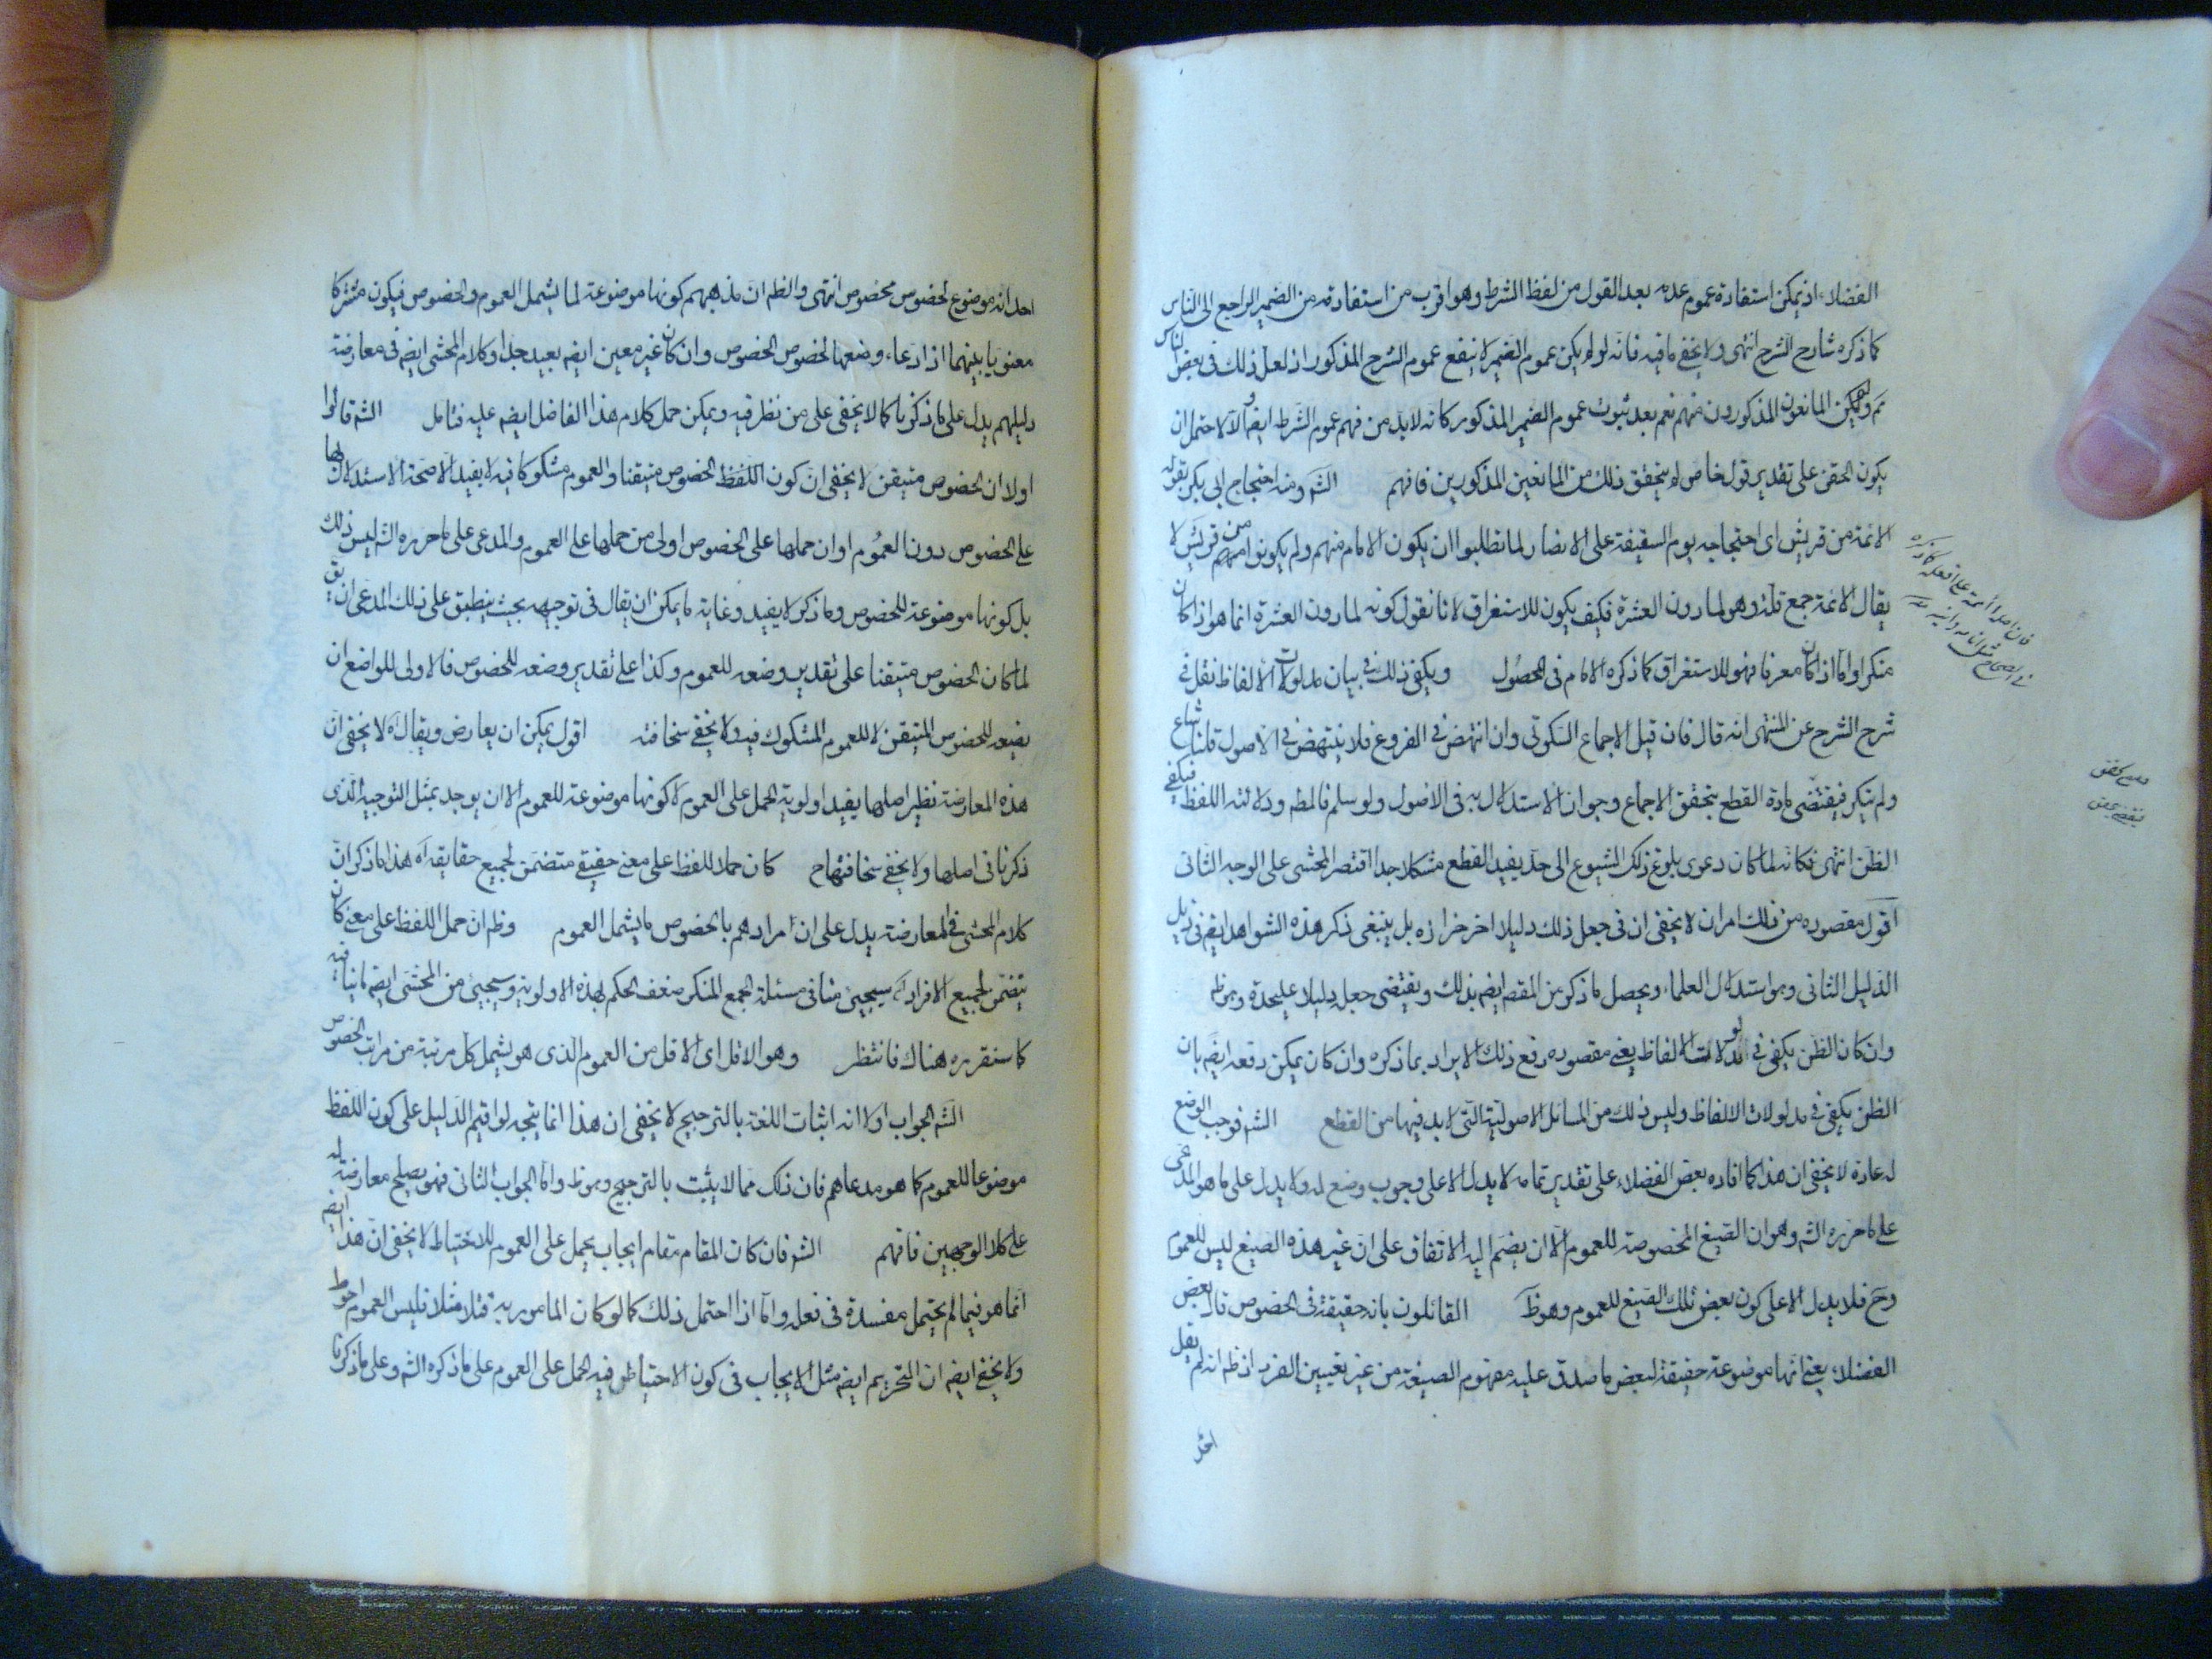 الفضلاء اذ يمكن استفادة عموم عدمه بعد القول من لفظ الشرط وهو اقرب من استفادته من الضمير الراجع الى الناس
كما ذكره شارح الشرح انتهى ولا يخفى ما فيه فانه لو لم يكن عموم الضمير لا ينفع عموم الشرح المذكور اذ لعل ذلك في بعض الناس
المانعون المذكورون منهم نعم بعد ثبوت عموم الضمير المذكور كانه لابد من فهم عموم الشرط ايضا والا لاحتمل ان
يكون الحقن على تقدير قول خاص لم يتحقق ذلك من المانعين المذكورين فافهم الشم ومنه احتجاج ابي بكر بقوله
الائمة من قريش اى احتجاجه يوم السقيفة على الانصار لما تطلبوا ان يكون الامام منهم ولم يكونوا من قريش لا
يقال الائمة جمع قلة وهو لما دون العشرة فكيف يكون للاستغراق لانا نقول كونه لما دون العشرة انما هو اذا كان
منكرا واما اذا كان معرفا فهو للاستغراق كما ذكره الامام فى المحصول ويكفى ذلك فى بيان مدلولات الالفاظ نقل فى
شرح الشرح عن المنتهى انه قال فان قيل الاجماع السكوتى وان انتهض فى الفروع فلا ينتهض فى الاصول قلنا شاع
ولم ينكر فيقتضى عادة القطع بتحقق الاجماع وجواز الاستدلال به فى الاصول ولو سلم فالمط مدلالته اللفظ فيكفى
الظن انتهى فكانه لما كان دعوى بلوغ ذلك الشيوع الى حد يفيد القطع مشكلا جدا اقتصر المحشى على الوجه الثانى
اقول مقصوده من ذلك امران لا يخفى ان فى جعل ذلك دليلا اخر حزازه بل ينبغى ذكر هذه الشواهد ايضا فى ذيل
الدليل الثانى وهو استدلال العلماء ويحصل ما ذكر من المقص ايضا بذلك ويقتضى جعله دليلا عليحدة وهو ظ
وان كان الظن يكفى فى مدلولات الالفاظ يعنى مقصوده دفع ذلك الايراد بما ذكره وان كان يمكن دفعه ايضا بان
الظن يكفى فى مدلولات الالفاظ وليس ذلك من المسائل الاصولية التى لابد فيها من القطع الشم فوجب الوضع
له عادة لا يخفى ان هذا كما افاده بعض الفضلاء على تقدير تمامه لا يدل الا على وجوب وضع له ولا يدل على ما هو المدعى
على ما حرره الشم وهو ان الصيغ المخصوصة للعموم الا ان يضم اليه الاتفاق على ان غير هذه الصيغ ليس للعموم
وح فلا يدل الا على كون بعض تلك الصيغ للعموم وهو ظ القائلون بانه حقيقة فى الخصوص قال بعض
الفضلاء يعنى انها موضوعة حقيقة لبعض ما صدق عليه مفهوم الصيغة من غير تعيين الفرد اذ ظ انه لم يقل
احد
احد انه موضوع لخصوص مخصوص انتهى والظ ان مذهبهم كونها موضوعة لما يشمل العموم والخصوص فيكون مشتركا
معنويا بينهما اذ ادعاء وضعها لخصوص الخصوص وان كان غير معين ايضا بعيد جدا وكلام المحشى ايضا فى معارضة
دليلهم يدل على ما ذكرنا كما لا يخفى على من نظر فيه ويمكن حمل كلام هذا الفاضل ايضا عليه فتامل الشم قالوا
اولا ان الخصوص متيقن لا يخفى ان كون اللفظ الخصوص متيقنا والعموم مشكوكا فيه لا يفيد الا صحة الاستدلال بها
على الخصوص دون العموم او ان حملها على الخصوص اولى من حملها على العموم والمدعى على ما حرره الشم ليس ذلك
بل كونها موضوعة للخصوص وما ذكر لا يفيد وغاية ما يمكن ان يقال فى توجيهه بحيث ينطبق على ذلك المدعى ان يق
لما كان الخصوص متيقنا على تقدير وضعه للعموم وكذا على تقدير وضعه للخصوص فالاولى للواضع ان
يضعه للخصوص المتيقن لا للعموم المشكوك فيه ولا يخفى سخافته اقول يمكن ان يعارض ويقال اه لا يخفى ان
هذه المعارضة نظير اصلها يفيد اولوية الحمل على العموم لا كونها موضوعة للعموم الا ان يوجد بمثل التوجيه الذى
ذكرنا فى اصلها ولا يخفى سخافتها ح كان حملا للفظ على معنى حقيقى متضمن لجميع حقايقه اه هذا ما ذكر ان
كلام المحشى فى المعارضة يدل على ان مرادهم بالخصوص ما يشمل العموم وظ ان حمل اللفظ على معنى كان
يتضمن لجميع الافراد اه سيجيئ منا فى مسئلة الجمع المنكر ضعف الحكم بهذه الاولوية وسيجيئ من المحشى ايضا ما ينافيه
كما سنقرره هناك فانتظر وهو الاقل اى الاقل من العموم الذى هو يشمل كل مرتبة من مراتب الخصوص
الشم الجواب اولا انه اثبات اللغة بالترجيح لا يخفى ان هذا انما يتجه لو اقيم الدليل على كون اللفظ
موضوعا للعموم كما هو مدعاهم فان ذلك مما لا يثبت بالترجيح وهو ظ واما الجواب الثانى فهو يصلح معارضة له
على كلا الوجهين فافهم الشم فان كان المقام مقام ايجاب يحمل على العموم للاحتياط لا يخفى ان هذا ايضا
انما هو فيما لم يحتمل مفسدة فى فعله واما اذا احتمل ذلك كما لو كان المامور به قتلا مثلا فليس العموم احوط
ولا يخفى ايضا ان التحريم ايضا مثل الايجاب فى كون الاحتياط فيه الحمل على العموم على ما ذكره الشم وعلى ما ذكرنا